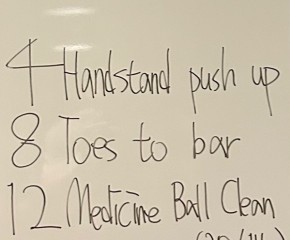 4 Handstand push up
8 Toes to bar
12 Medicine Ball Clean